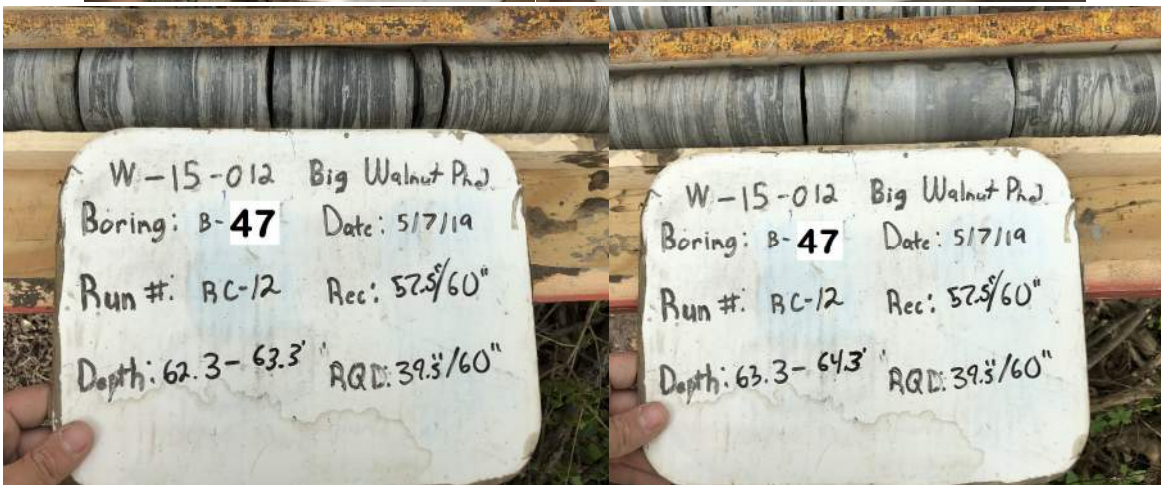 W-15-012 Big Walnut Ph2
Boring: B-47 Date: 5/7/19
Run #: RC-12 Rec: 57.5"/60"
Depth: 62.3-63.3' RQD: 39.5"/60"
W-15-012 Big Walnut Ph2
Boring: B-47 Date: 5/7/19
Run #: RC-12 Rec: 57.5"/60"
Depth: 63.3-64.3' RQD: 39.5"/60"